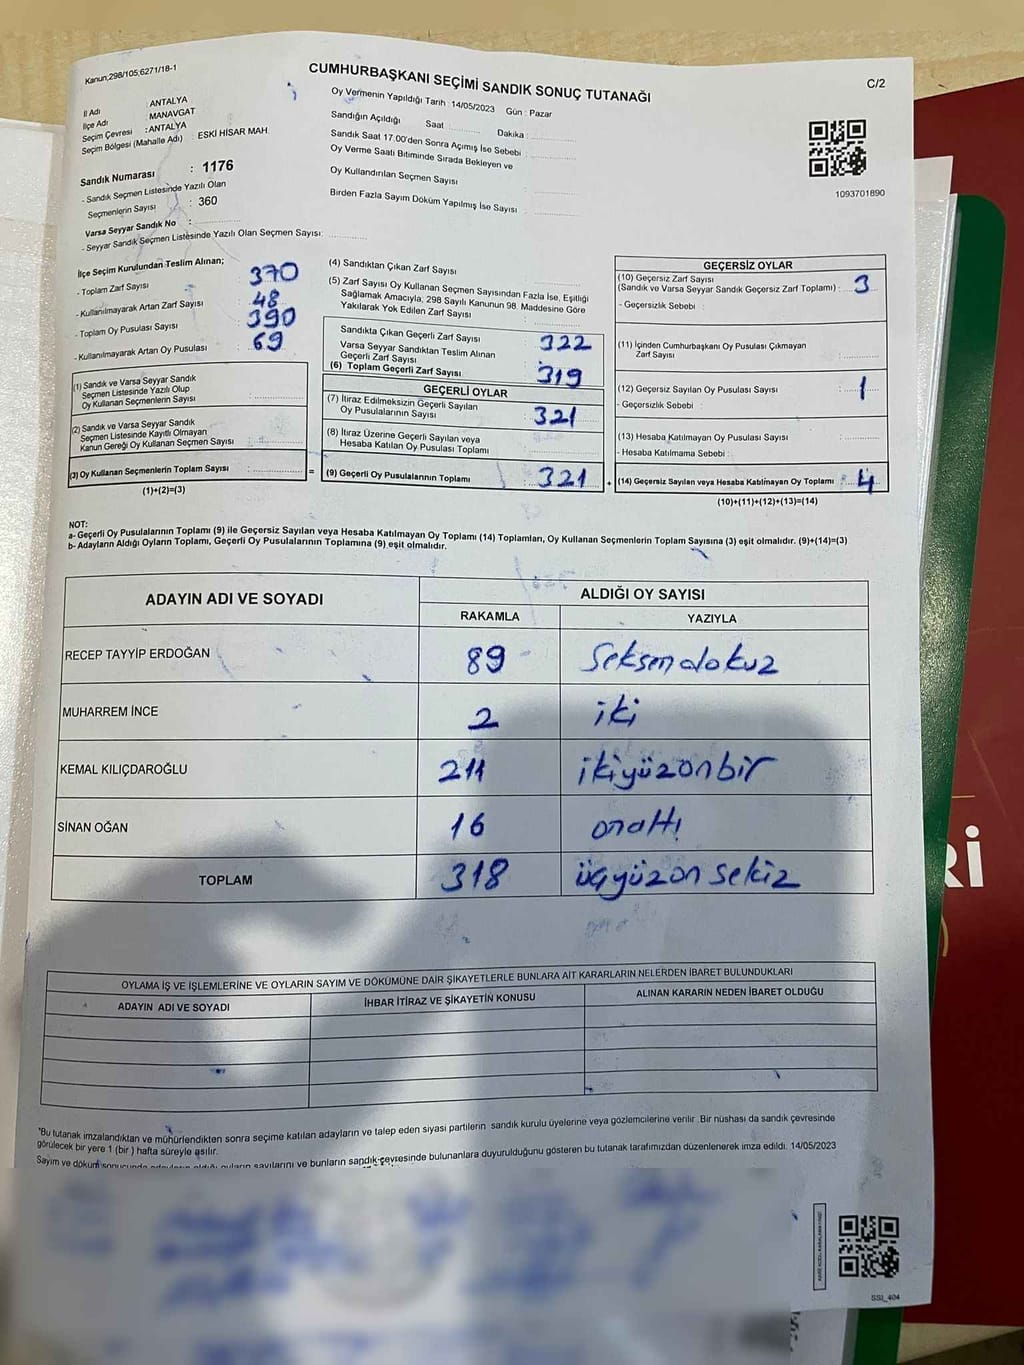 Kanun;298/105;6271/18-1
CUMHURBAŞKANI SEÇİMİ SANDIK SONUÇ TUTANAĞI
C/2
İl Adı : ANTALYA
İlçe Adı : MANAVGAT
Seçim Çevresi : ANTALYA
Seçim Bölgesi (Mahalle Adı) : ESKİ HİSAR MAH.
Sandık Numarası : 1176
- Sandık Seçmen Listesinde Yazılı Olan
Seçmenlerin Sayısı : 360
Varsa Seyyar Sandık No :
- Seyyar Sandık Seçmen Listesinde Yazılı Olan Seçmen Sayısı:
Oy Vermenin Yapıldığı Tarih : 14/05/2023 Gün : Pazar
Sandığın Açıldığı Saat Dakika :
Sandık Saat 17.00'den Sonra Açımış İse Sebebi :
Oy Verme Saati Bitiminde Sırada Bekleyen ve
Oy Kullandırılan Seçmen Sayısı :
Birden Fazla Sayım Döküm Yapılmış İse Sayısı :
1093701890
İlçe Seçim Kurulundan Teslim Alınan;
- Toplam Zarf Sayısı 370
- Kullanılmayarak Artan Zarf Sayısı 48
- Toplam Oy Pusulası Sayısı 390
- Kullanılmayarak Artan Oy Pusulası 69
(1) Sandık ve Varsa Seyyar Sandık
Seçmen Listesinde Yazılı Olup
Oy Kullanan Seçmenlerin Sayısı :
(2) Sandık ve Varsa Seyyar Sandık
Seçmen Listesinde Kayıtlı Olmayan
Kanun Gereği Oy Kullanan Seçmen Sayısı :
(3) Oy Kullanan Seçmenlerin Toplam Sayısı :
(1)+(2)=(3)
=
(4) Sandıktan Çıkan Zarf Sayısı :
(5) Zarf Sayısı Oy Kullanan Seçmen Sayısından Fazla İse, Eşitliği
Sağlamak Amacıyla, 298 Sayılı Kanunun 98. Maddesine Göre
Yakılarak Yok Edilen Zarf Sayısı :
Sandıkta Çıkan Geçerli Zarf Sayısı 322
Varsa Seyyar Sandıktan Teslim Alınan
Geçerli Zarf Sayısı
(6) Toplam Geçerli Zarf Sayısı 319
GEÇERLİ OYLAR
(7) İtiraz Edilmeksizin Geçerli Sayılan
Oy Pusulalarının Sayısı : 321
(8) İtiraz Üzerine Geçerli Sayılan veya
Hesaba Katılan Oy Pusulası Toplamı :
(9) Geçerli Oy Pusulalarının Toplamı 321
+
GEÇERSİZ OYLAR
(10) Geçersiz Zarf Sayısı
(Sandık ve Varsa Seyyar Sandık Geçersiz Zarf Toplamı) : 3
- Geçersizlik Sebebi :
(11) İçinden Cumhurbaşkanı Oy Pusulası Çıkmayan
Zarf Sayısı :
(12) Geçersiz Sayılan Oy Pusulası Sayısı : 1
- Geçersizlik Sebebi :
(13) Hesaba Katılmayan Oy Pusulası Sayısı :
- Hesaba Katılmama Sebebi :
(14) Geçersiz Sayılan veya Hesaba Katılmayan Oy Toplamı : 4
(10)+(11)+(12)+(13)=(14)
NOT:
a- Geçerli Oy Pusulalarının Toplamı (9) ile Geçersiz Sayılan veya Hesaba Katılmayan Oy Toplamı (14) Toplamları, Oy Kullanan Seçmenlerin Toplam Sayısına (3) eşit olmalıdır. (9)+(14)=(3)
b- Adayların Aldığı Oyların Toplamı, Geçerli Oy Pusulalarının Toplamına (9) eşit olmalıdır.
ADAYIN ADI VE SOYADI
ALDIĞI OY SAYISI
RAKAMLA YAZIYLA
RECEP TAYYİP ERDOĞAN 89 Seksendokuz
MUHARREM İNCE 2 iki
KEMAL KILIÇDAROĞLU 211 ikiyüzonbir
SİNAN OĞAN 16 onaltı
TOPLAM 318 üçyüzonsekiz
OYLAMA İŞ VE İŞLEMLERİNE VE OYLARIN SAYIM VE DÖKÜMÜNE DAİR ŞİKAYETLERLE BUNLARA AİT KARARLARIN NELERDEN İBARET BULUNDUKLARI
ADAYIN ADI VE SOYADI İHBAR İTİRAZ VE ŞİKAYETİN KONUSU ALINAN KARARIN NEDEN İBARET OLDUĞU
"Bu tutanak imzalandıktan ve mühürlendikten sonra seçime katılan adayların ve talep eden siyasi partilerin sandık kurulu üyelerine veya gözlemcilerine verilir. Bir nüshası da sandık çevresinde
görülecek bir yere 1 (bir) hafta süreyle asılır.
Sayım ve döküm sonucunda adayların aldığı oyların sayılarını ve bunların sandık çevresinde bulunanlara duyurulduğunu gösteren bu tutanak tarafımızdan düzenlenerek imza edildi. 14/05/2023
SSI_404
Rİ